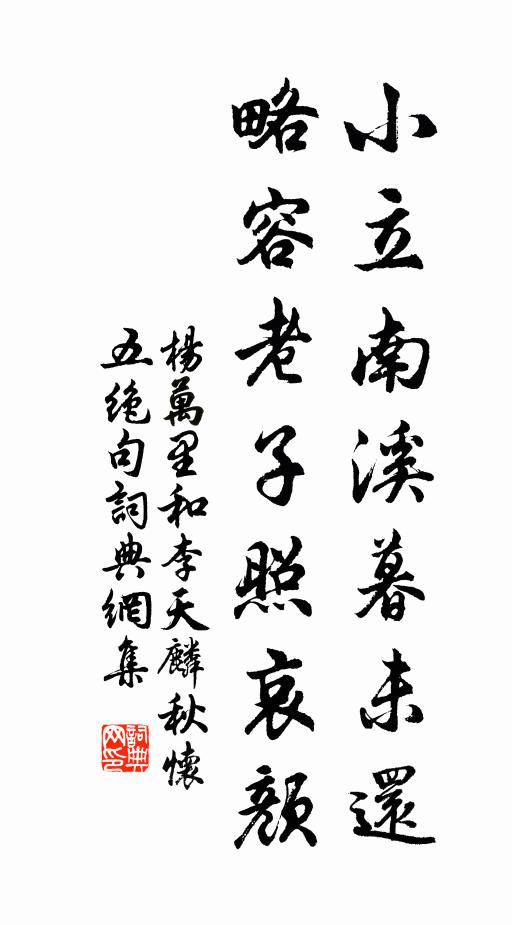 小立南溪暮未還
略容老子照哀顔
楊萬里和李天麟秋懷
五絶句詞典網集
詞典
网印